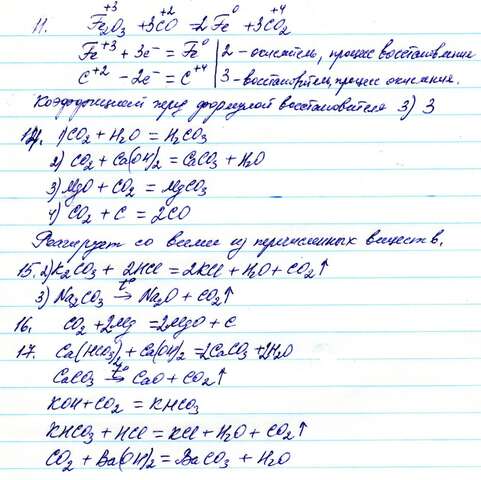 11. Fe₂⁺³O₃ + 3C⁺²O = 2Fe⁰ + 3C⁺⁴O₂
Fe⁺³ + 3e⁻ = Fe⁰ | 2 - окислитель, процесс восстановления
C⁺² - 2e⁻ = C⁺⁴ | 3 - восстановитель, процесс окисления.
Коэффициент перед формулой восстановителя 3) 3
14. 1) CO₂ + H₂O = H₂CO₃
2) CO₂ + Ca(OH)₂ = CaCO₃ + H₂O
3) MgO + CO₂ = MgCO₃
4) CO₂ + C = 2CO
Реагирует со всеми из перечисленных веществ.
15. 2) K₂CO₃ + 2HCl = 2KCl + H₂O + CO₂↑
3) Na₂CO₃ →t° Na₂O + CO₂↑
16. CO₂ + 2Mg = 2MgO + C
17. Ca(HCO₃)₂ + Ca(OH)₂ = 2CaCO₃ + 2H₂O
CaCO₃ →t° CaO + CO₂↑
KOH + CO₂ = KHCO₃
KHCO₃ + HCl = KCl + H₂O + CO₂↑
CO₂ + Ba(OH)₂ = BaCO₃ + H₂O